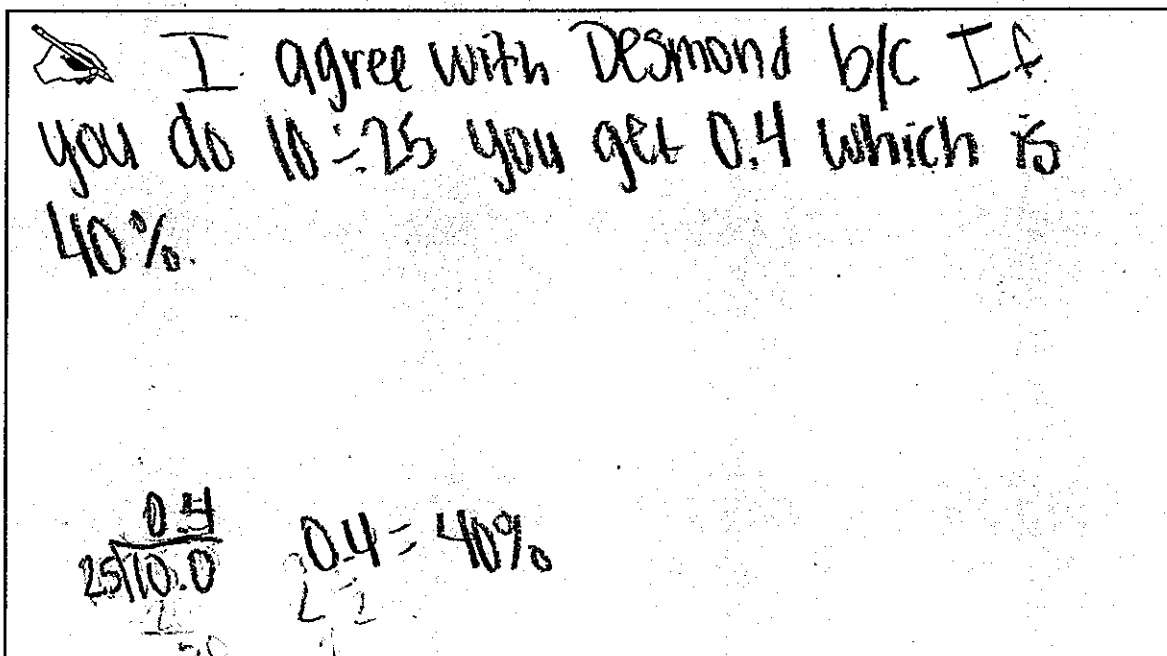 I agree with Desmond b/c If
you do 10÷25 you get 0.4 which is
40%.
0.4
25)10.0
0.4 = 40%